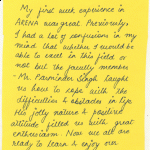 My first week experience in
ARENA was great. Previously
I had a lot of confusions in my
mind that whether I would be
able to excel in this field or
not but the faculty member
Mr. Parminder Singh taught
us how to cope with the
difficulties & obstacles in life.
His jolly nature & positive
attitude filled us with great
enthusiasm. Now we all are
ready to learn & enjoy over